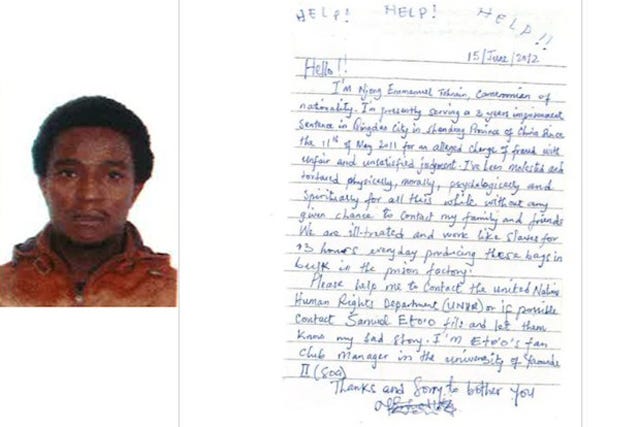 HELP! HELP! HELP!!
15/June/2012
Hello!!
I'm Njong Emmanuel Tohnain, Cameroonian of
nationality. I'm presently serving a 3 years imprisonment
sentence in Qingdao City in Shandong Province of China since
the 11th of May 2011 for an alleged charge of fraud with
unfair and unsatisfied judgment. I've been molested and
tortured physically, morally, psychologically and
spiritually for all this while without any
given chance to contact my family and friends
We are ill-treated and work like slaves for
13 hours everyday producing these bags in
bulk in the prison factory.
Please help me to contact the united Nations
Human Rights Department (UNHR) or if possible
contact Samuel Eto'o fils and let them
know my sad story. I'm Eto'o's fan
club manager in the university of Yaounde
II (SOA)
Thanks and Sorry to bother you